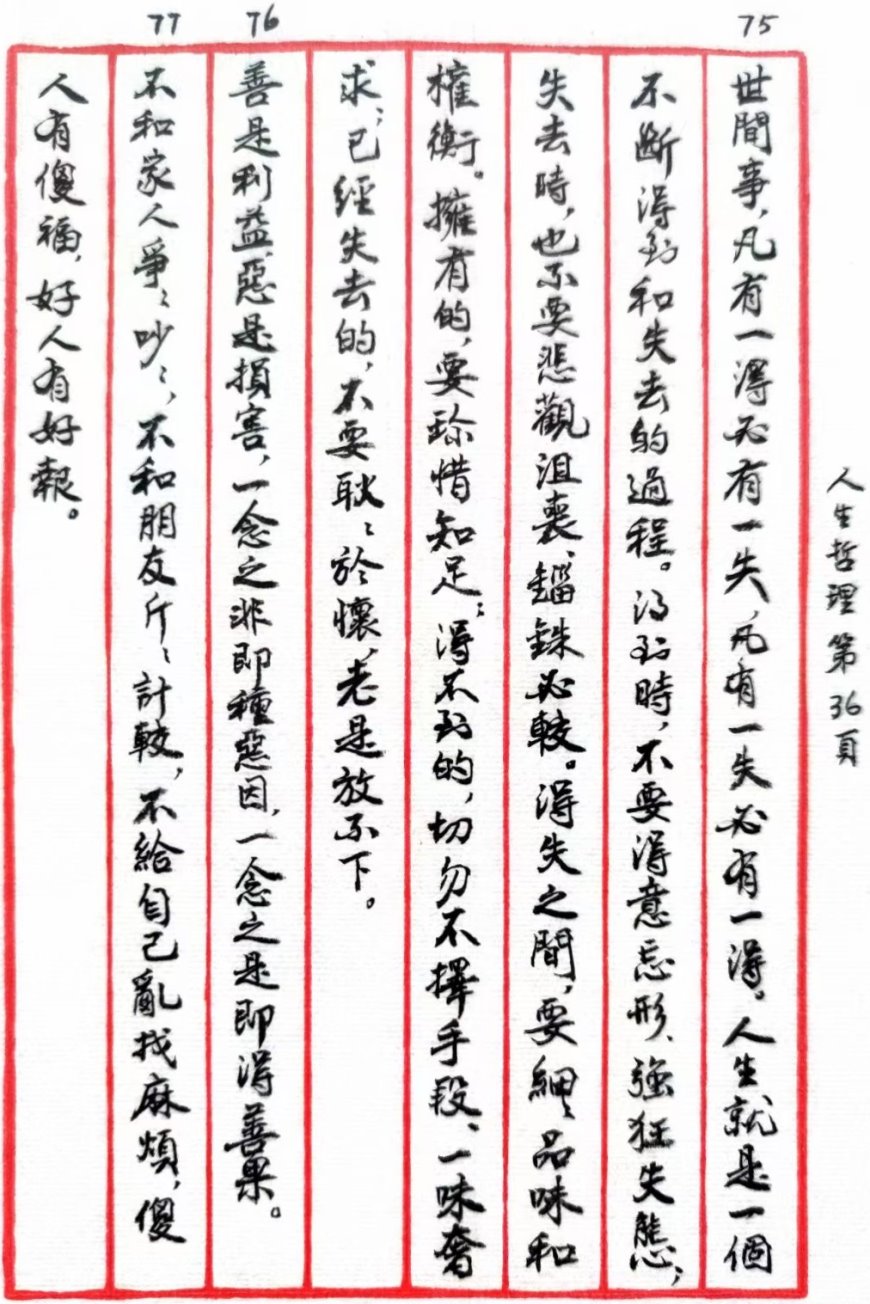 人生哲理第36頁
75
世間事,凡有一得必有一失,凡有一失必有一得。人生就是一個
不斷得到和失去的過程。得到時,不要得意忘形、強狂失態;
失去時,也不要悲觀沮喪、錙銖必較。得失之間,要細、品味和
權衡。擁有的,要珍惜知足;得不到的,切勿不擇手段、一味奢
求;已經失去的,不要耿、於懷,老是放不下。
76
善是利益,惡是損害,一念之非即種惡因,一念之是即得善果。
77
不和家人爭、吵、,不和朋友斤、計較,不給自己亂找麻煩,傻
人有傻福,好人有好報。